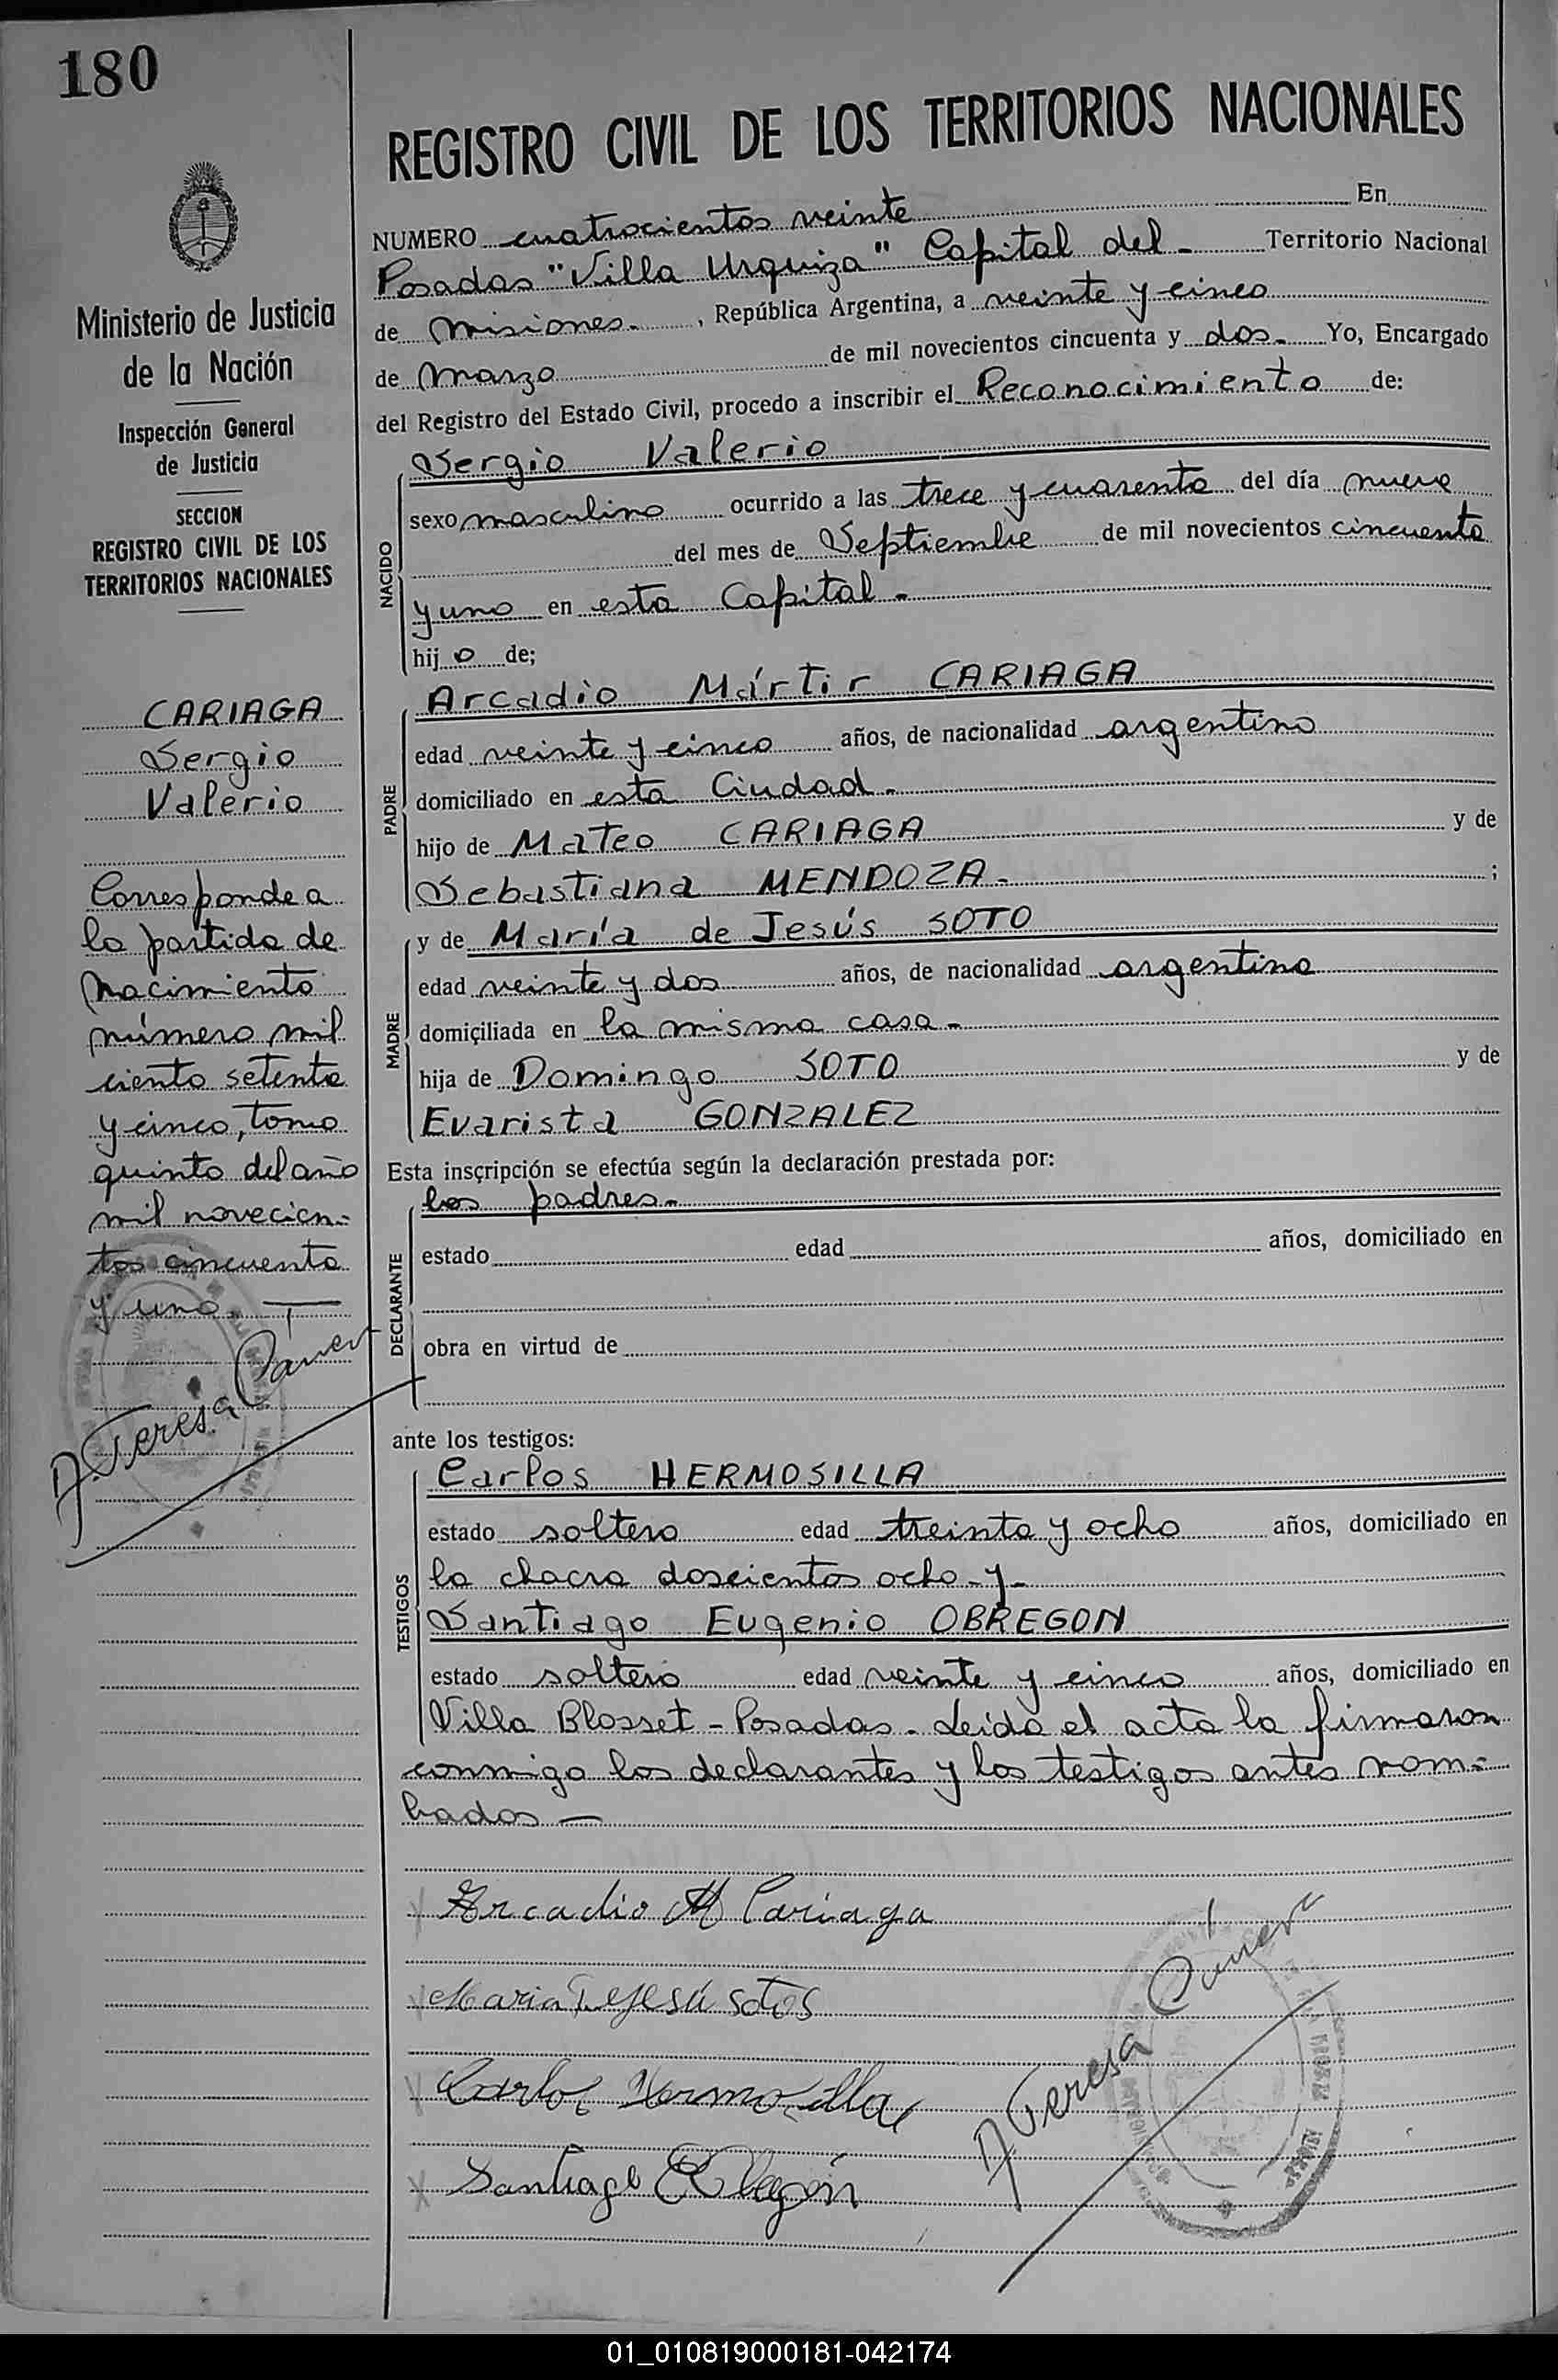 180
REGISTRO CIVIL DE LOS TERRITORIOS NACIONALES
Ministerio de Justicia
de la Nación
Inspección General
de Justicia
SECCION
REGISTRO CIVIL DE LOS
TERRITORIOS NACIONALES
CARIAGA
Sergio
Valerio
Corresponde a
la partida de
nacimiento
número mil
ciento setenta
y cinco, tomo
quinto del año
mil novecien-
tos cincuenta
y uno.
NUMERO cuatrocientos veinte En
Posadas "Villa Urquiza" Capital del - Territorio Nacional
de Misiones. , República Argentina, a veinte y cinco
de Marzo de mil novecientos cincuenta y dos. Yo, Encargado
del Registro del Estado Civil, procedo a inscribir el Reconocimiento de:
NACIDO
Sergio Valerio
sexo masculino ocurrido a las trece y cuarenta del día nueve
del mes de Septiembre de mil novecientos cincuenta
y uno en esta Capital.
hijo de;
PADRE
Arcadio Mártir CARIAGA
edad veinte y cinco años, de nacionalidad argentino
domiciliado en esta Ciudad.
hijo de Mateo CARIAGA y de
Sebastiana MENDOZA. ;
MADRE
y de María de Jesús SOTO
edad veinte y dos años, de nacionalidad argentina
domiciliada en la misma casa.
hija de Domingo SOTO y de
Evarista GONZALEZ
Esta inscripción se efectúa según la declaración prestada por:
DECLARANTE
los padres.
estado edad años, domiciliado en
obra en virtud de
ante los testigos:
TESTIGOS
Carlos HERMOSILLA
estado soltero edad treinta y ocho años, domiciliado en
la chacra doscientos ocho y
Santiago Eugenio OBREGON
estado soltero edad veinte y cinco años, domiciliado en
Villa Blosset - Posadas. Leída el acta la firmaron
conmigo los declarantes y los testigos antes nom=
brados —
Arcadio M Cariaga
Maria D eJesú sotos
Carlos Hermosilla
Santiago E Obregón
01_010819000181-042174